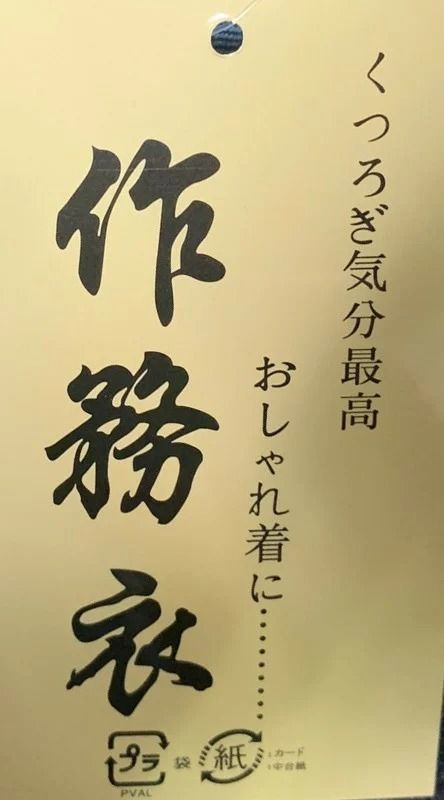 くつろぎ気分最高
おしゃれ着に………
作務衣
プラ
PVAL
袋
紙
:カード
:宇台紙